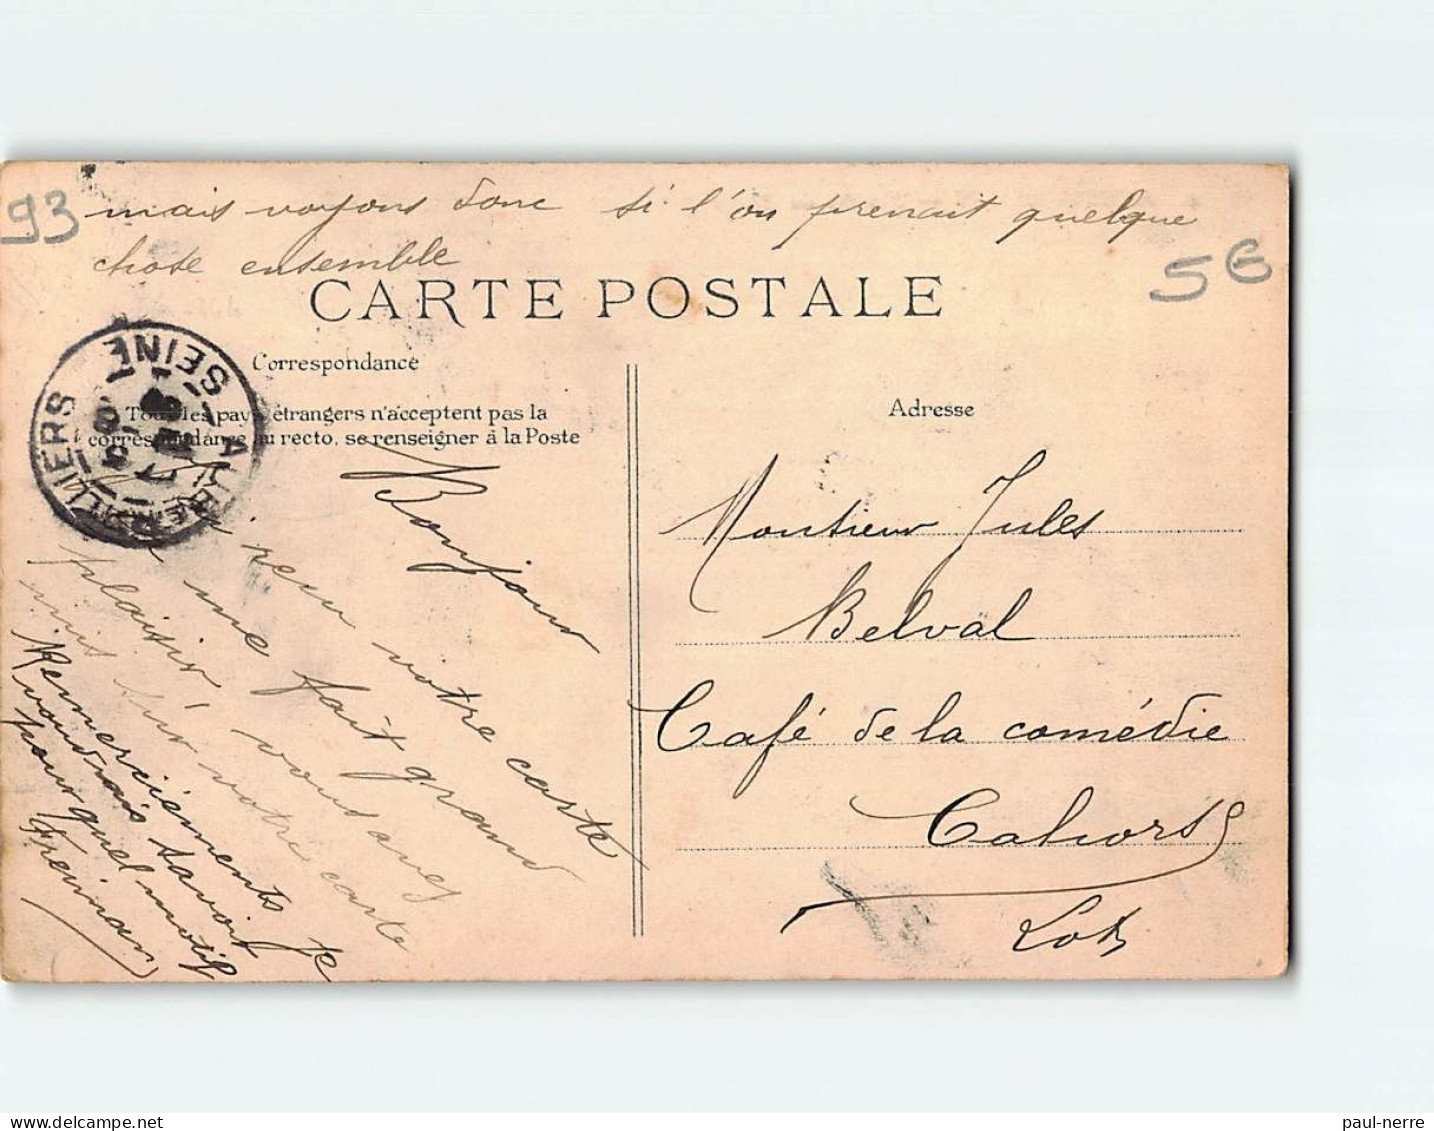 93
mais voyons donc si l'on prenait quelque
chose ensemble
5€
CARTE POSTALE
Correspondance
Tous les pays étrangers n'acceptent pas la
correspondance au recto, se renseigner à la Poste
AUBERVILLIERS
SEINE
Adresse
Bonjour
reçu votre carte
me fait grand
plaisir, vous avez
mis sur votre carte
Remerciements je
voudrais savoir
pour quel motif
Freiman
Monsieur Jules
Belval
Café de la comédie
Cahors
Lot
delcampe.net
paul-nerre